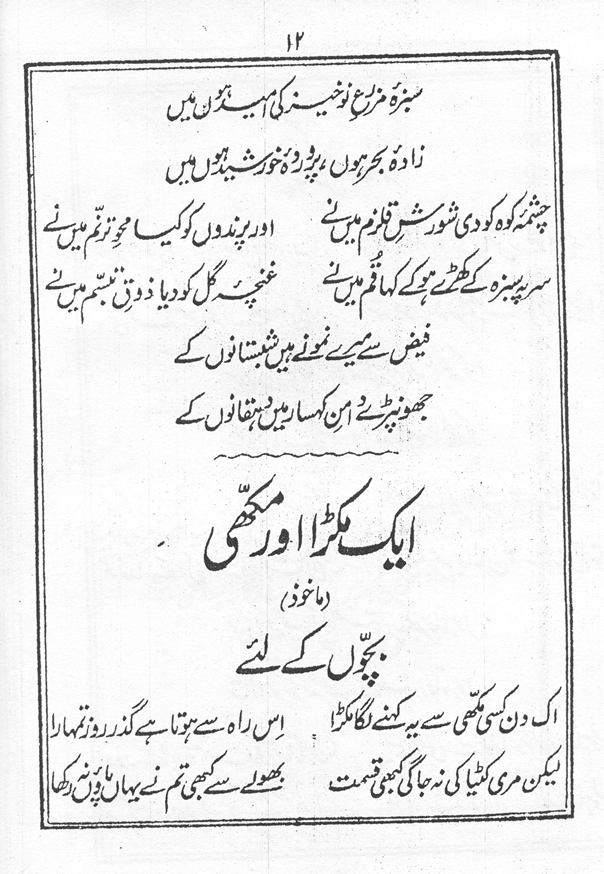 ۱۲
سبزۂ مزرعِ نوخیز کی امید ہوں میں
زادۂ بحر ہوں، پروردۂ خورشید ہوں میں
چشمۂ کوہ کو دی شورشِ قلزم میں نے اور پرندوں کو کیا محوِ ترنّم میں نے
سر پہ سبزہ کے کھڑے ہو کے کہا قُم میں نے غنچۂ گل کو دیا ذوقِ تبسّم میں نے
فیض سے میرے نمونے ہیں شبستانوں کے
جھونپڑے دامنِ کہسار میں دہقانوں کے
ایک مکڑا اور مکھّی
(ماخوذ)
بچّوں کے لئے
اک دن کسی مکھّی سے یہ کہنے لگا مکڑا اِس راہ سے ہوتا ہے گذر روز تمہارا
لیکن مری کٹیا کی نہ جاگی کبھی قسمت بھولے سے کبھی تم نے یہاں پاؤں نہ رکھا